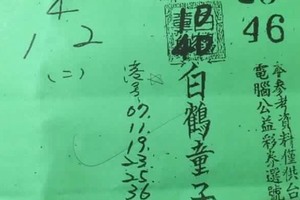 46
4
1 2
(二)
港号
07.
11.
19.
23
25
36
白鶴童子
參考資料僅供台
電腦公益彩券選號